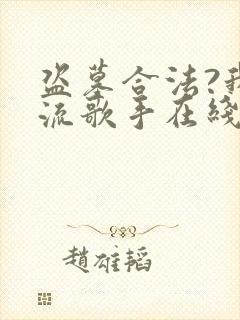 盗墓合法?我
流歌手在线
赵雄韬